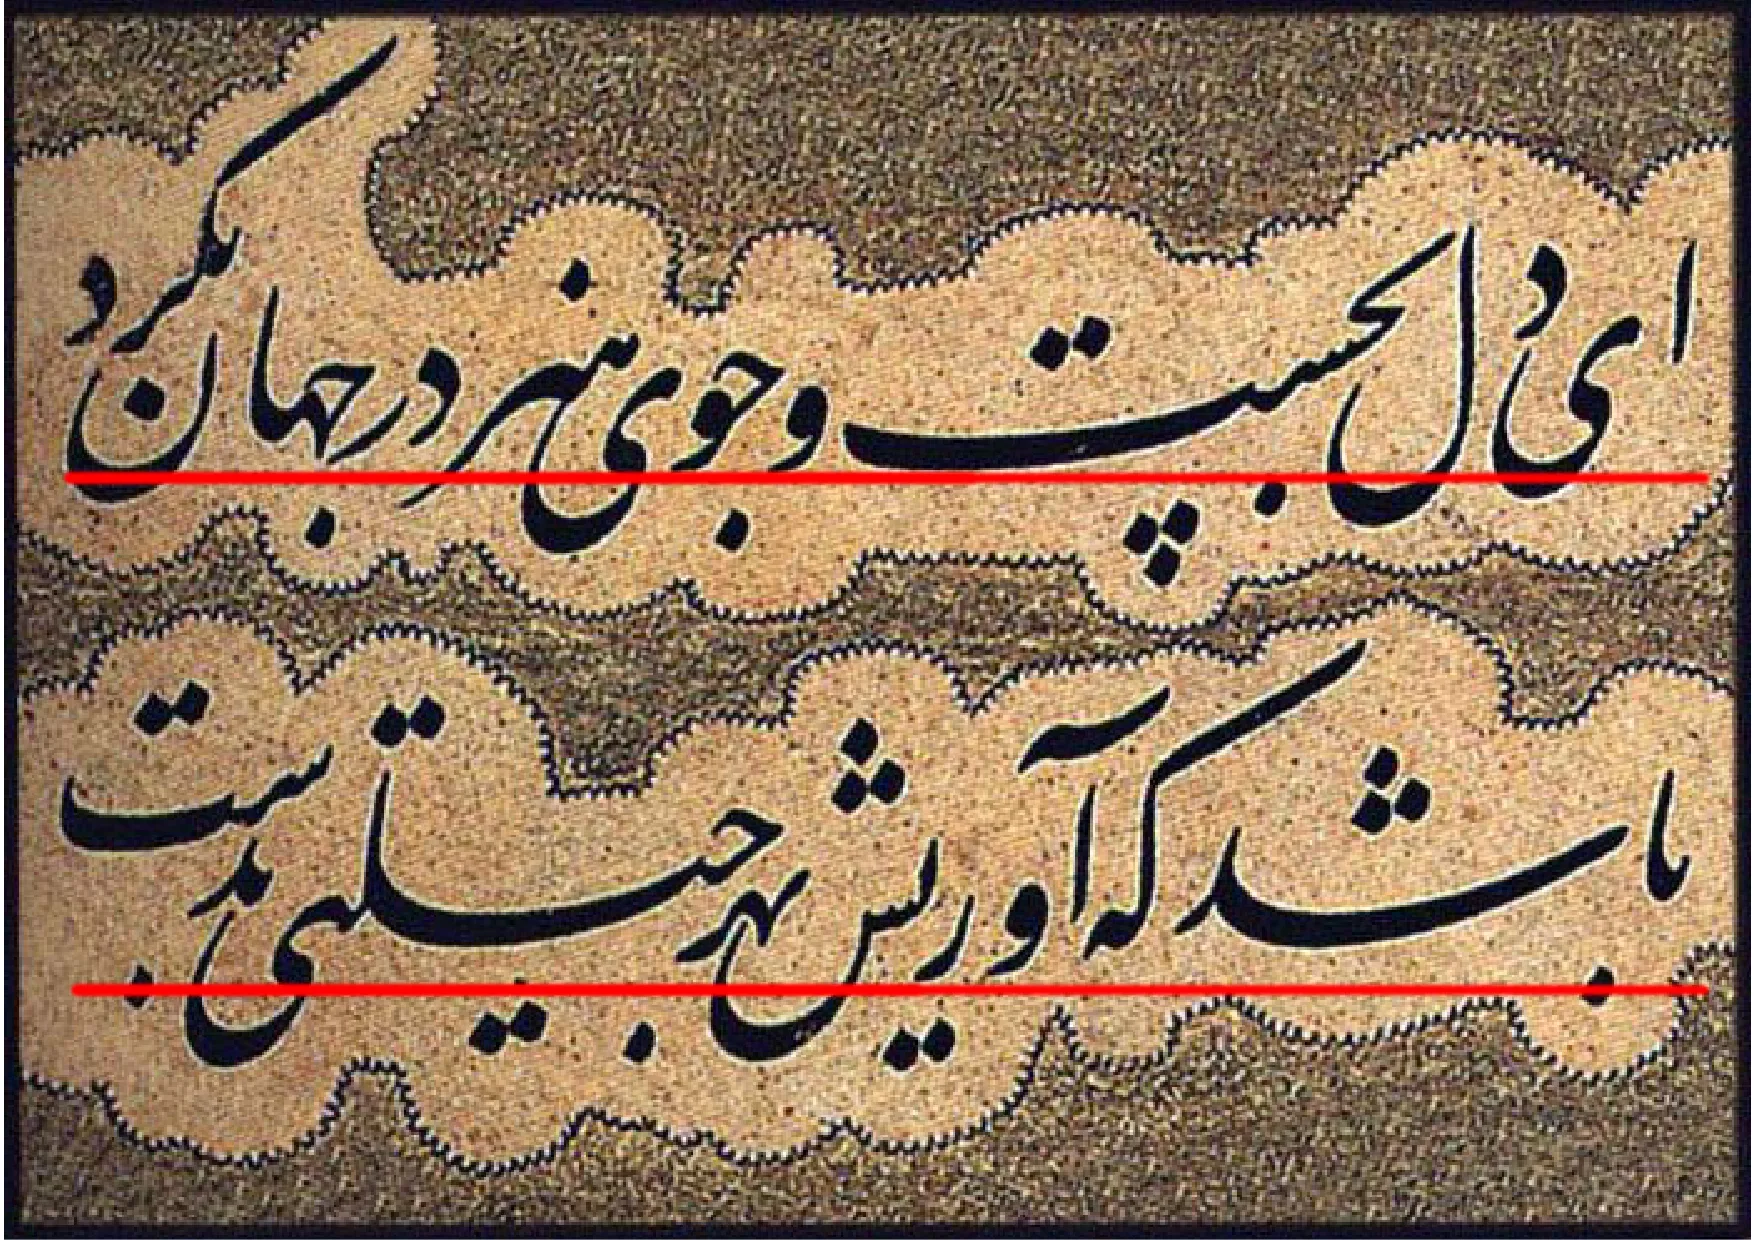 ای دل بجست و جوی هنر در جهان بگرد
باشد که آوریش بهر حیلتی بدست